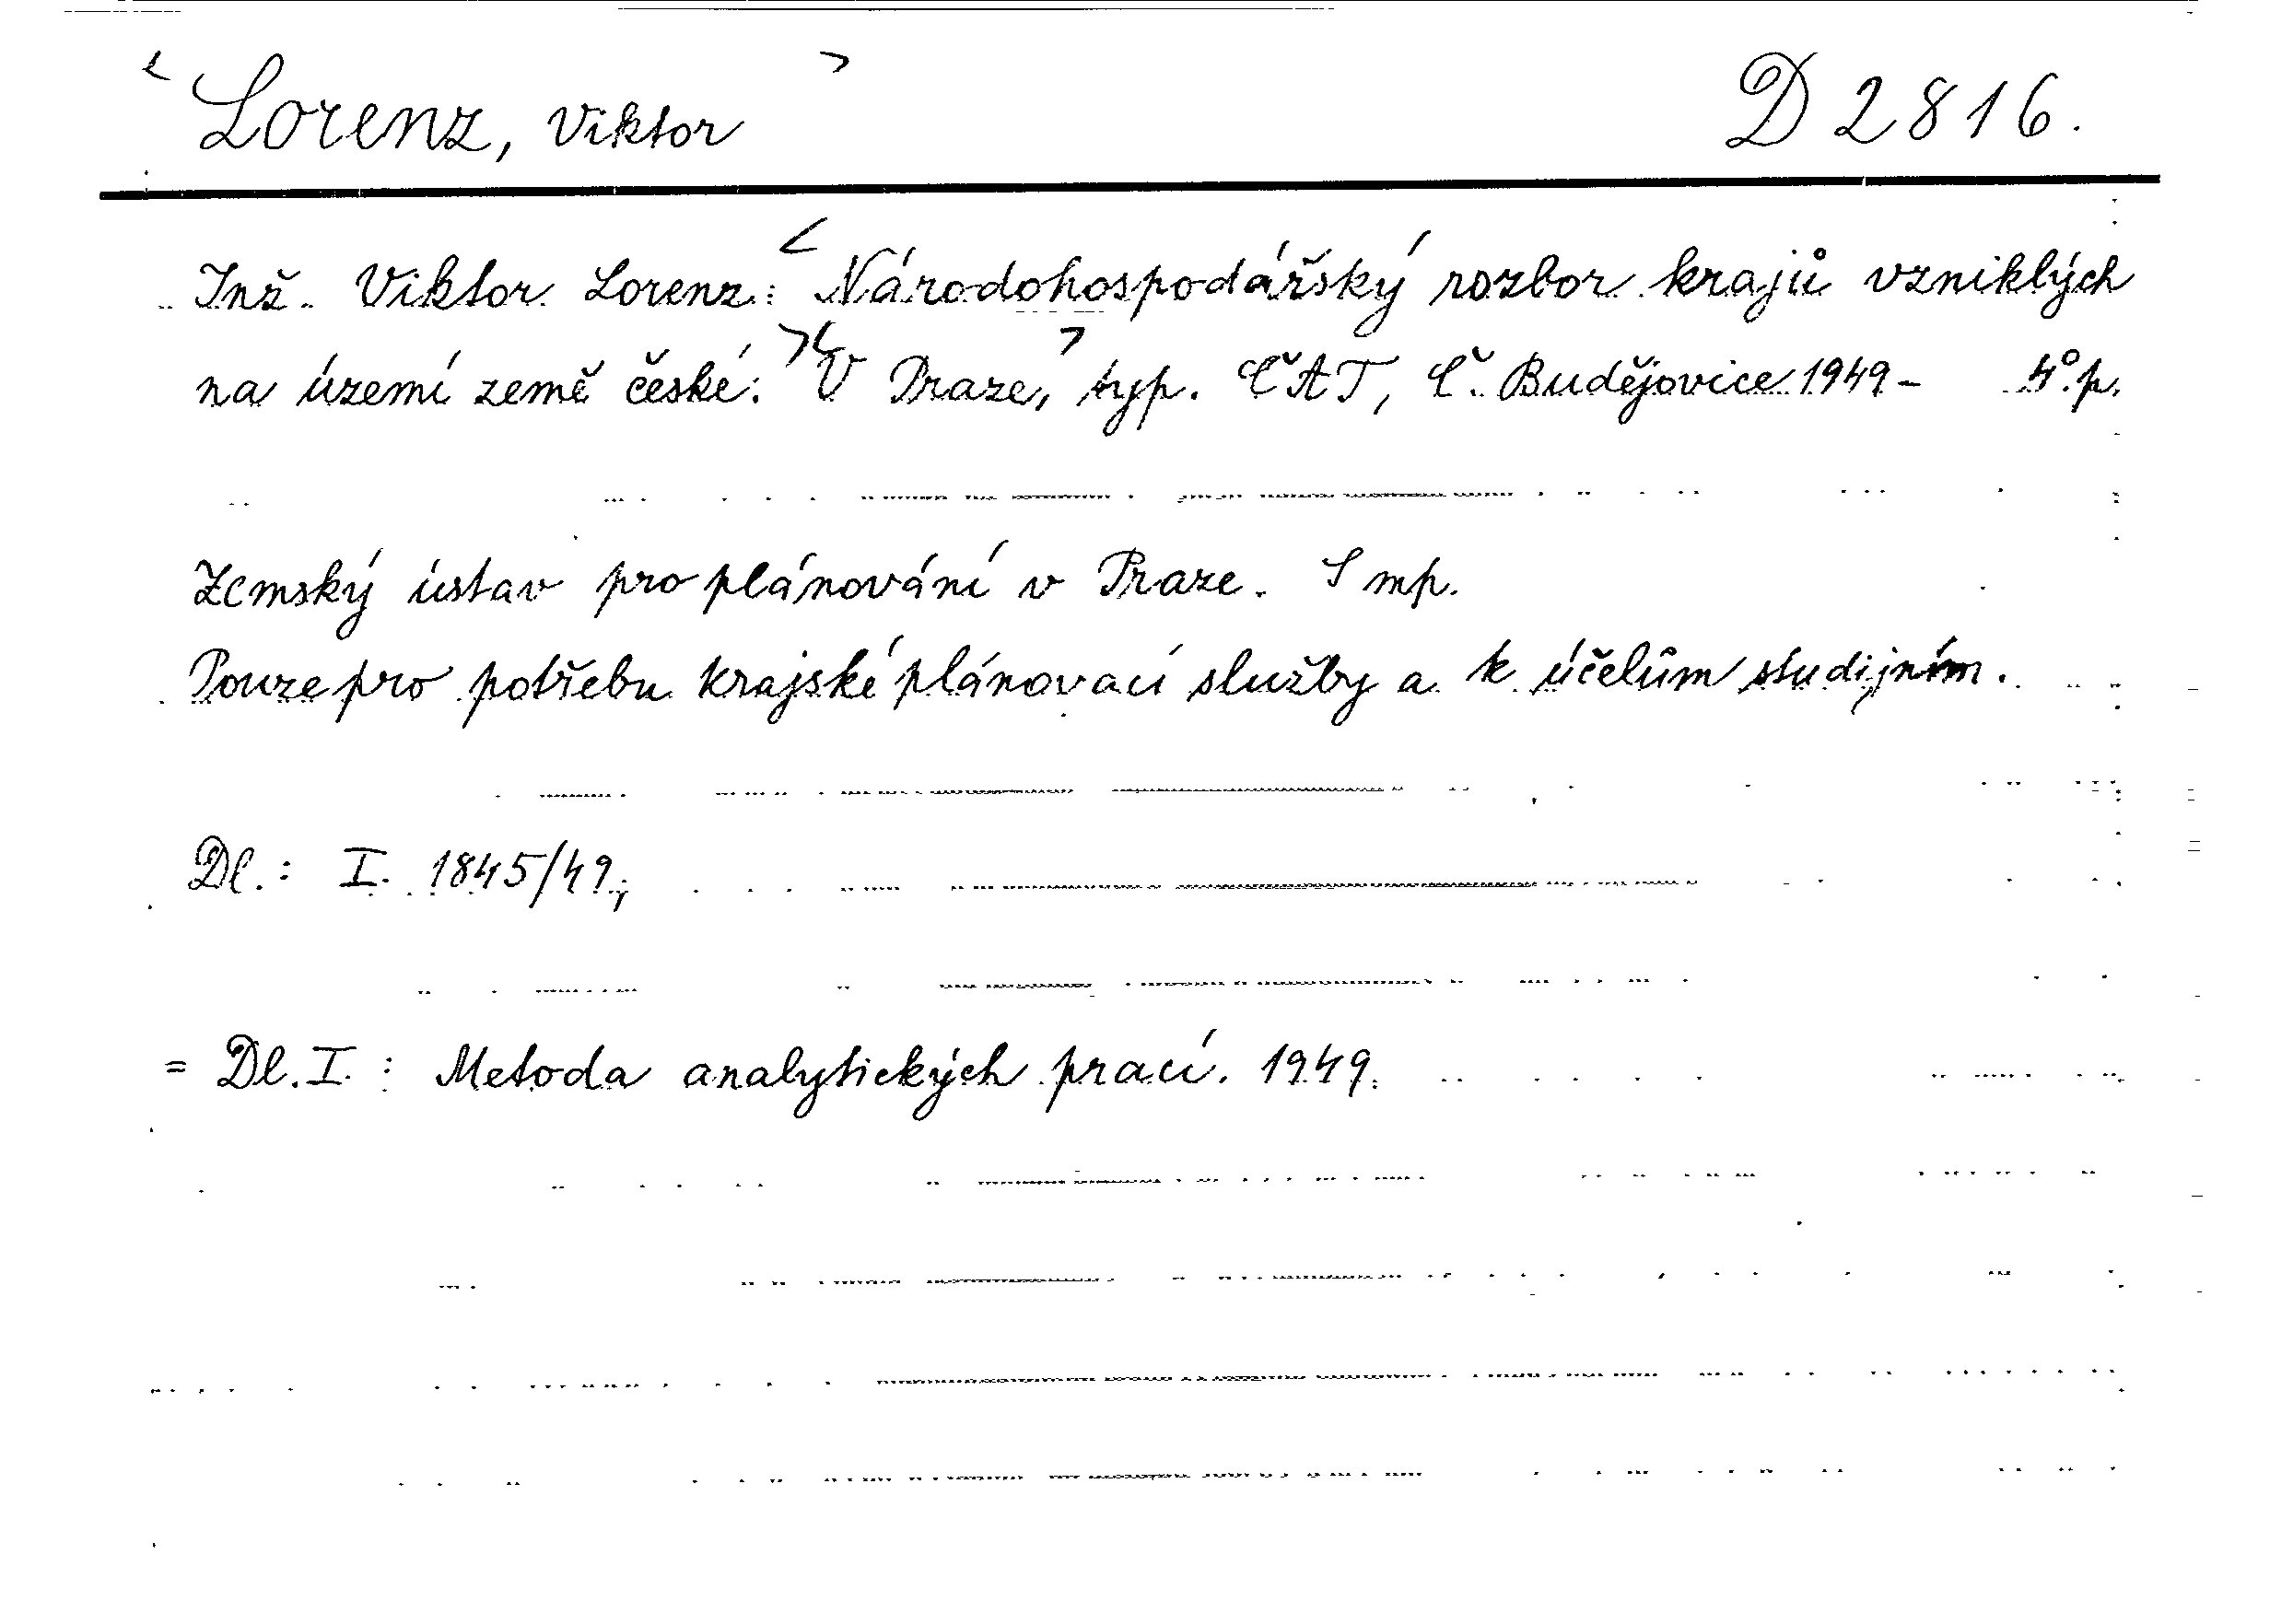 < Lorenz, Viktor > D 2816.
Inž. Viktor Lorenz: < Národohospodářský rozbor krajů vzniklých
na území země české. >< V Praze, > typ. ČAT, Č. Budějovice 1949- 4°. p.
Zemský ústav pro plánování v Praze. S mp.
Pouze pro potřebu krajské plánovací služby a k účelům studijním.
Dl.: I. 1845/49,
= Dl. I.: Metoda analytických prací. 1949.